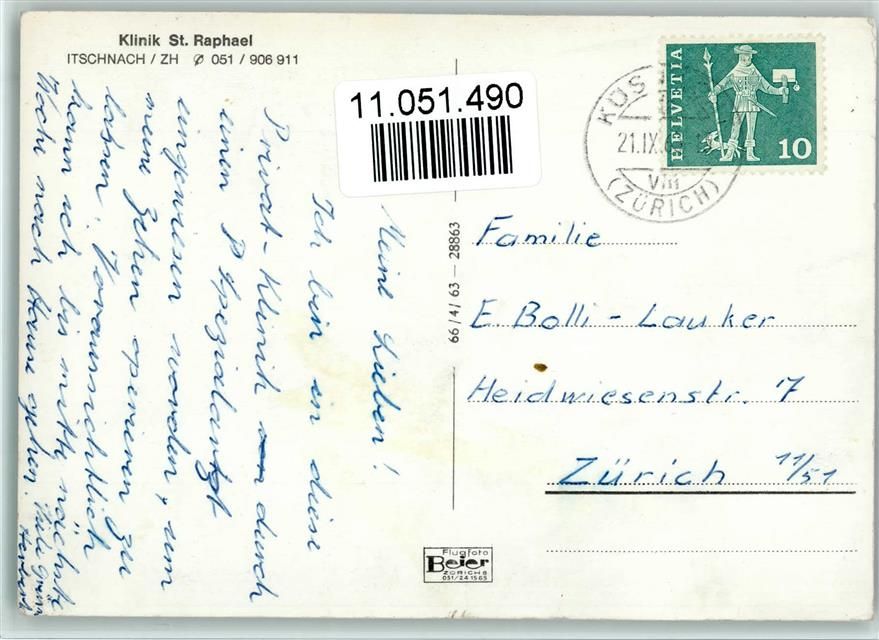 Klinik St. Raphael
ITSCHNACH / ZH ✆ 051 / 906 911
11.051.490
HELVETIA
10
KÜS
21.IX.
VIII
(ZÜRICH)
Meine Lieben!
Ich bin in diese
Privat-Klinik durch
einen Spezialarzt
angewiesen worden, um
meine Zehen operieren zu
lassen. Voraussichtlich
kann ich bis mitte nächste
Woche nach Hause gehen.
Viele Grüsse
66/41 63 — 28863
Familie
E. Bolli - Lauker
Heidwiesenstr. 7
Zürich 11/51
Flugfoto
Beier
ZÜRICH 8
051/24 15 65